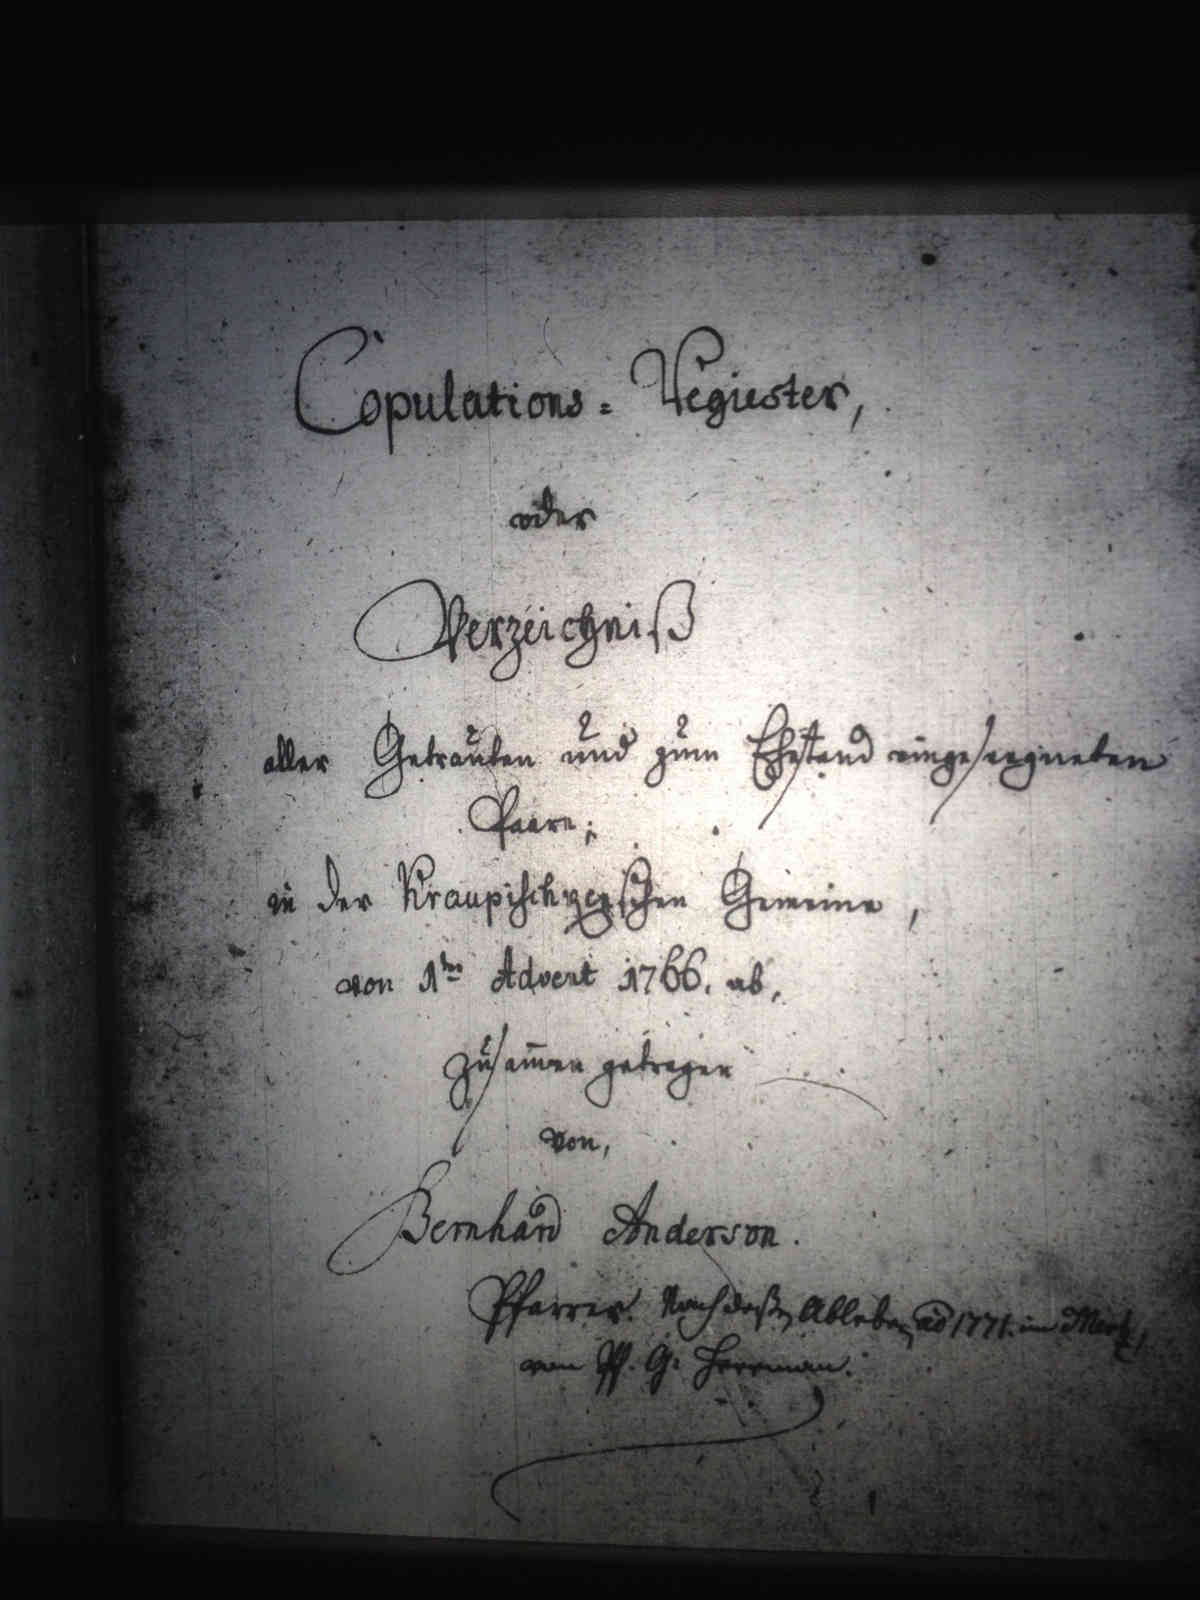 Copulations = Regiester,
oder
Verzeichniß
aller Getrauten und zum Ehestand eingesegneten
Paare;
in der Kraupischkenschen Gemeine,
von 1ten Advent 1766. ab,
zusam̅en getragen
von,
Bernhard Anderson.
Pfarrer. Nach deßen Ableben ao 1771. im Mertz,
von Pf. G: Herrman.